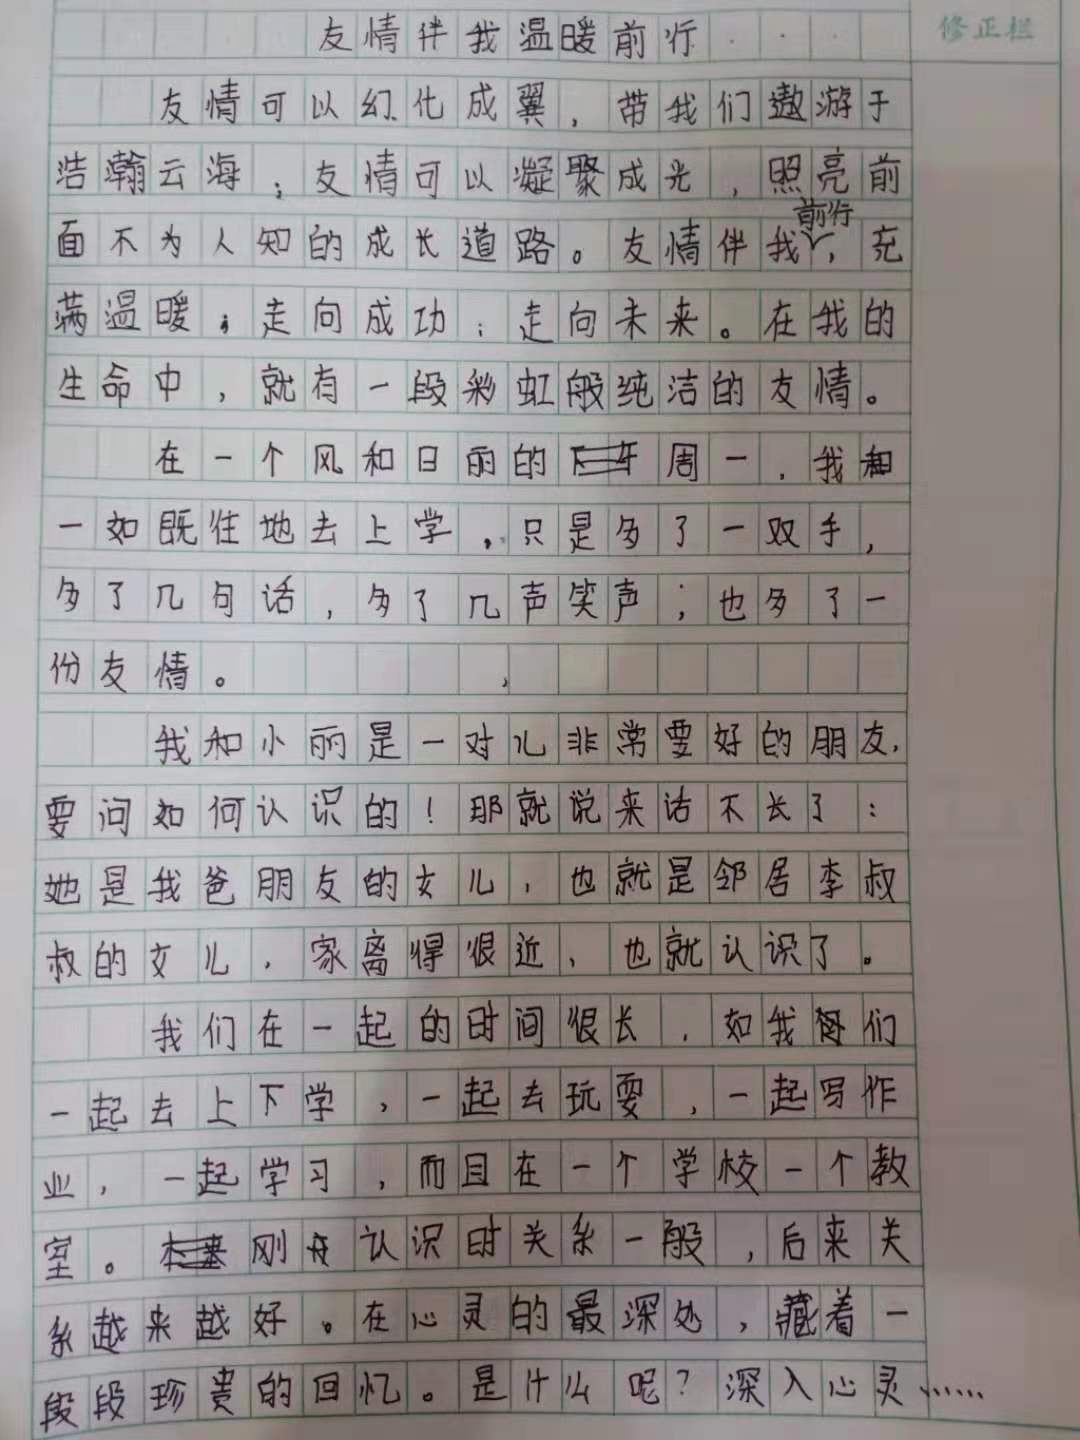 友情伴我温暖前行
修正栏
友情可以幻化成翼，带我们遨游于
浩瀚云海；友情可以凝聚成光，照亮前
面不为人知的成长道路。友情伴我前行，充
满温暖；走向成功；走向未来。在我的
生命中，就有一段彩虹般纯洁的友情。
在一个风和日丽的周一，我
一如既往地去上学，只是多了一双手，
多了几句话，多了几声笑声；也多了一
份友情。
我和小丽是一对儿非常要好的朋友，
要问如何认识的！那就说来话不长了：
她是我爸朋友的女儿，也就是邻居李叔
叔的女儿，家离得很近、也就认识了。
我们在一起的时间很长，如我们
一起去上下学，一起去玩耍，一起写作
业，一起学习，而且在一个学校一个教
室。刚认识时关系一般，后来关
系越来越好。在心灵的最深处，藏着一
段段珍贵的回忆。是什么呢？深入心灵……